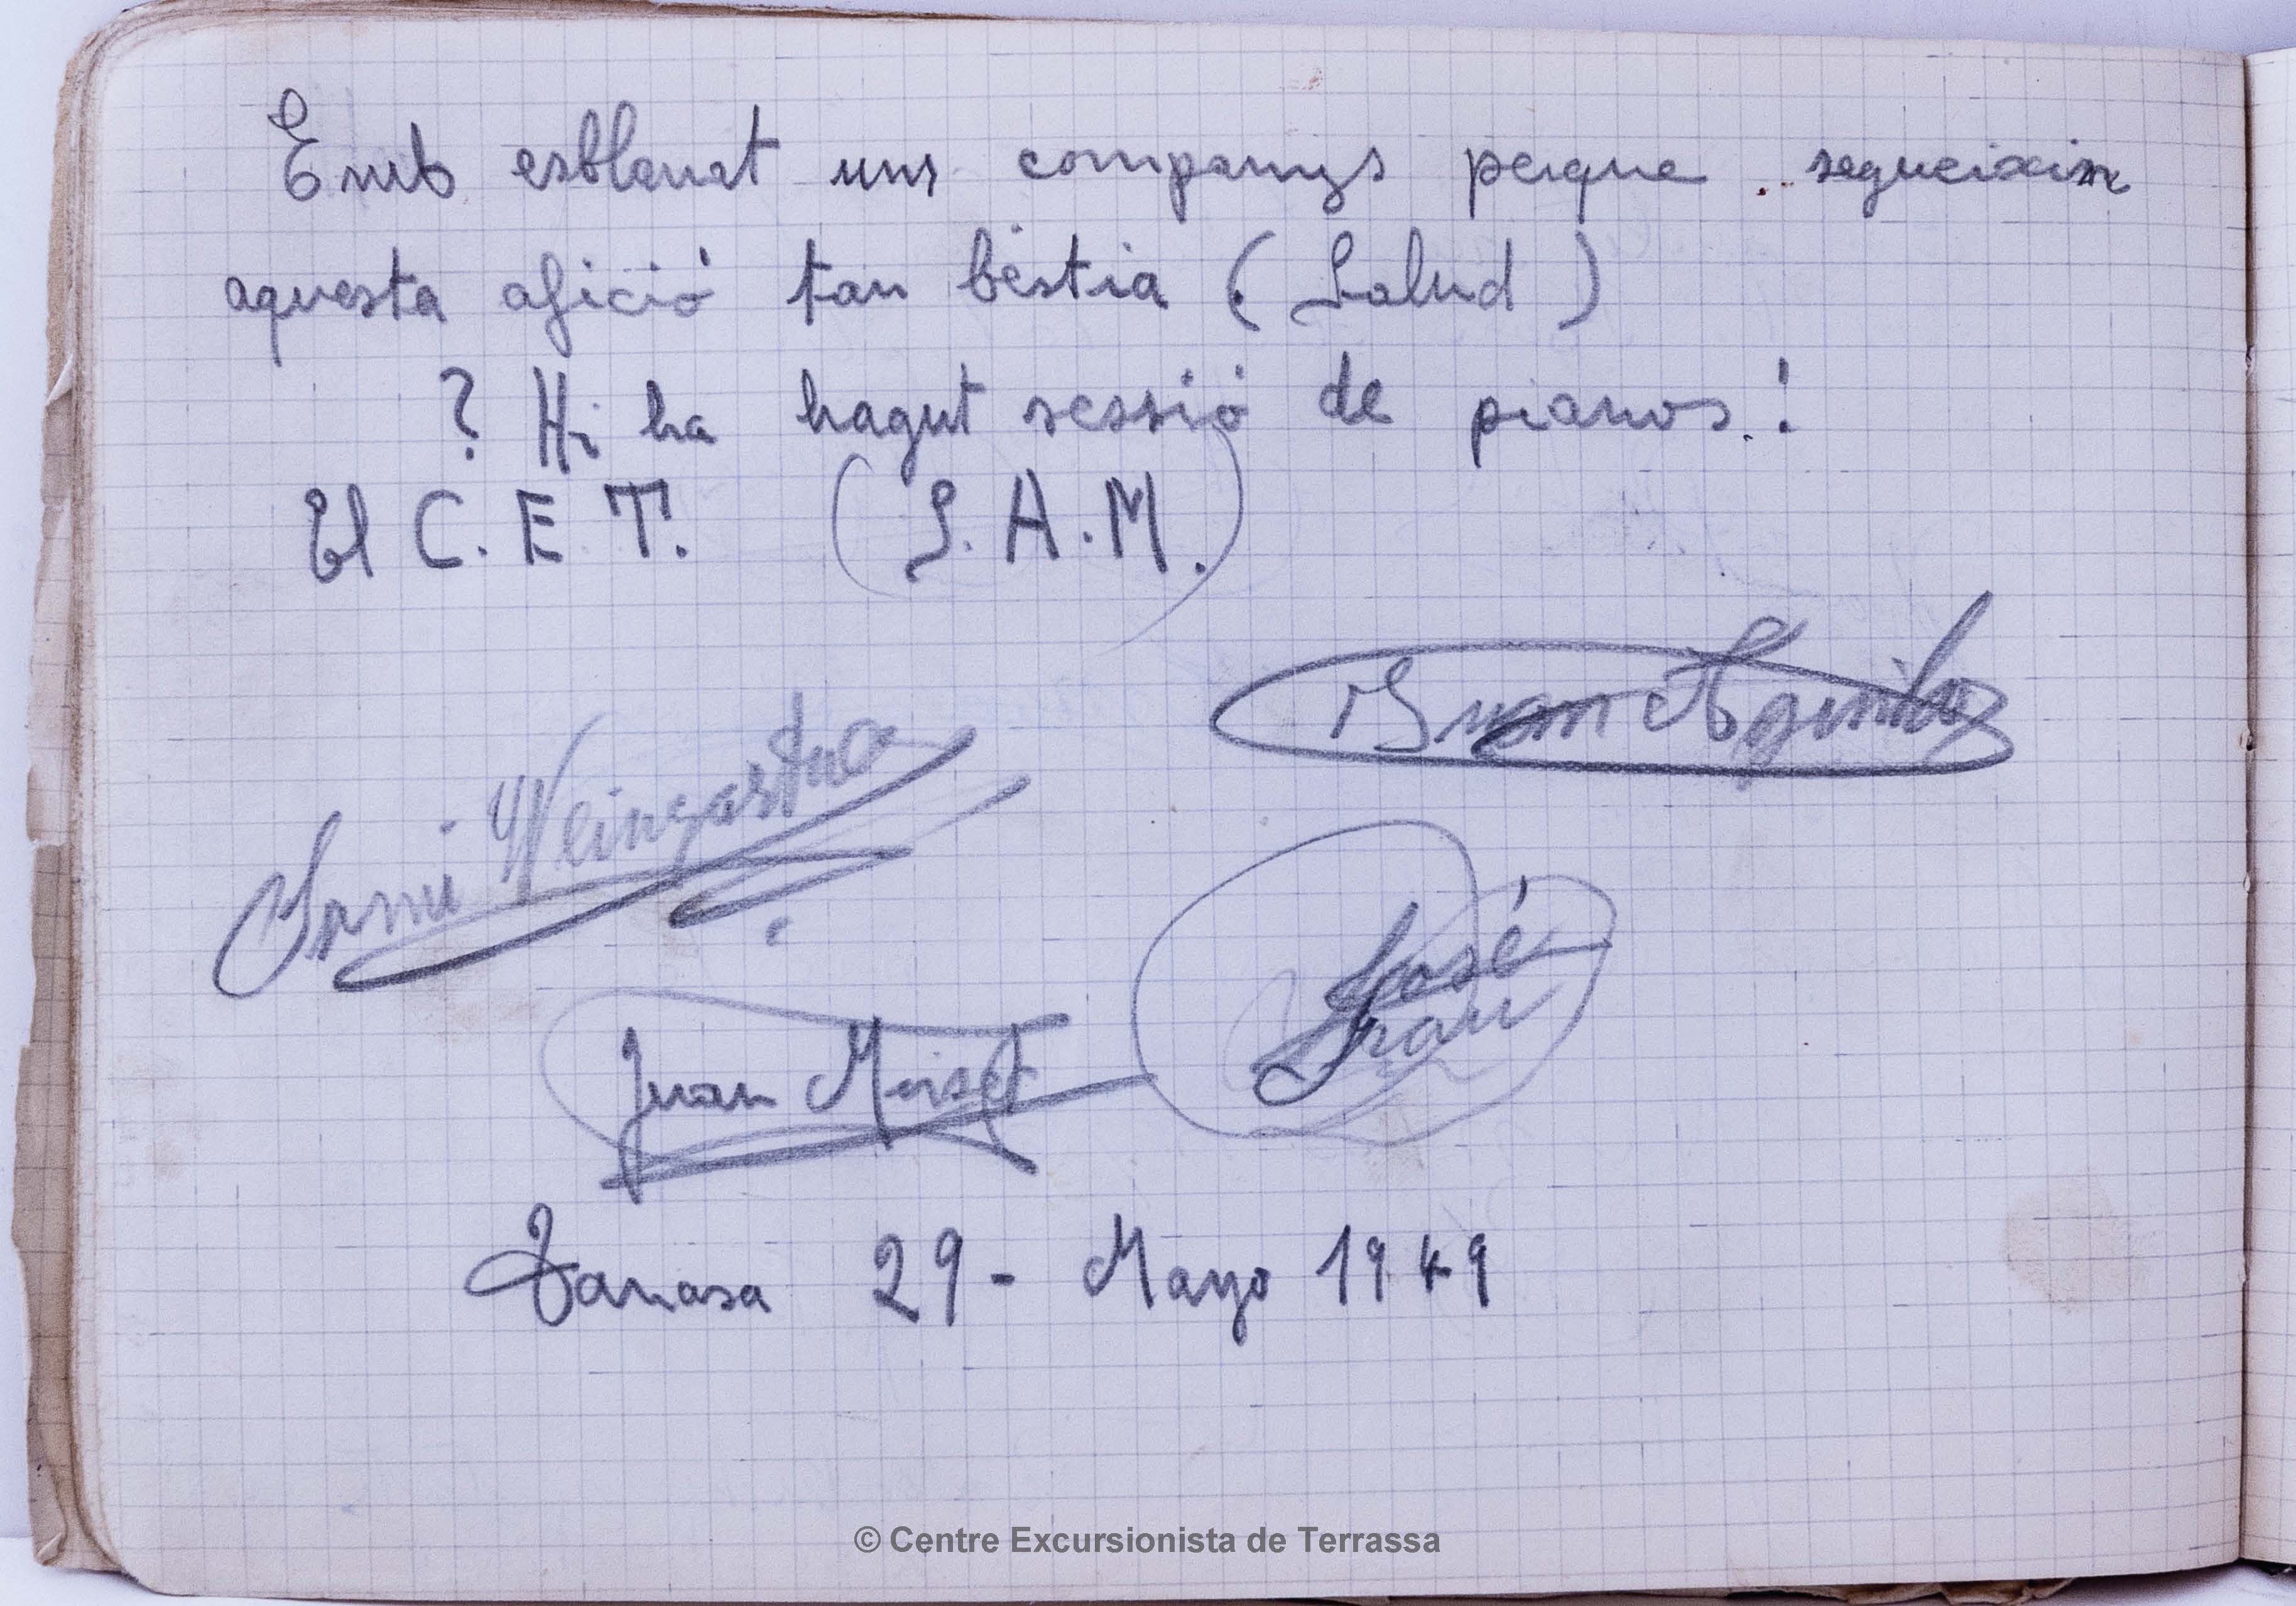 Emb esblanat uns companys perque segueixin
aquesta afició tan bèstia (Salud)
? Hi ha hagut sessió de pianos.!
El C.E.T. (S.A.M.)
Juan Aguilar
Weingartner
José
Grau
Juan Miset
Tarrasa 29 - Mayo 1949
© Centre Excursionista de Terrassa